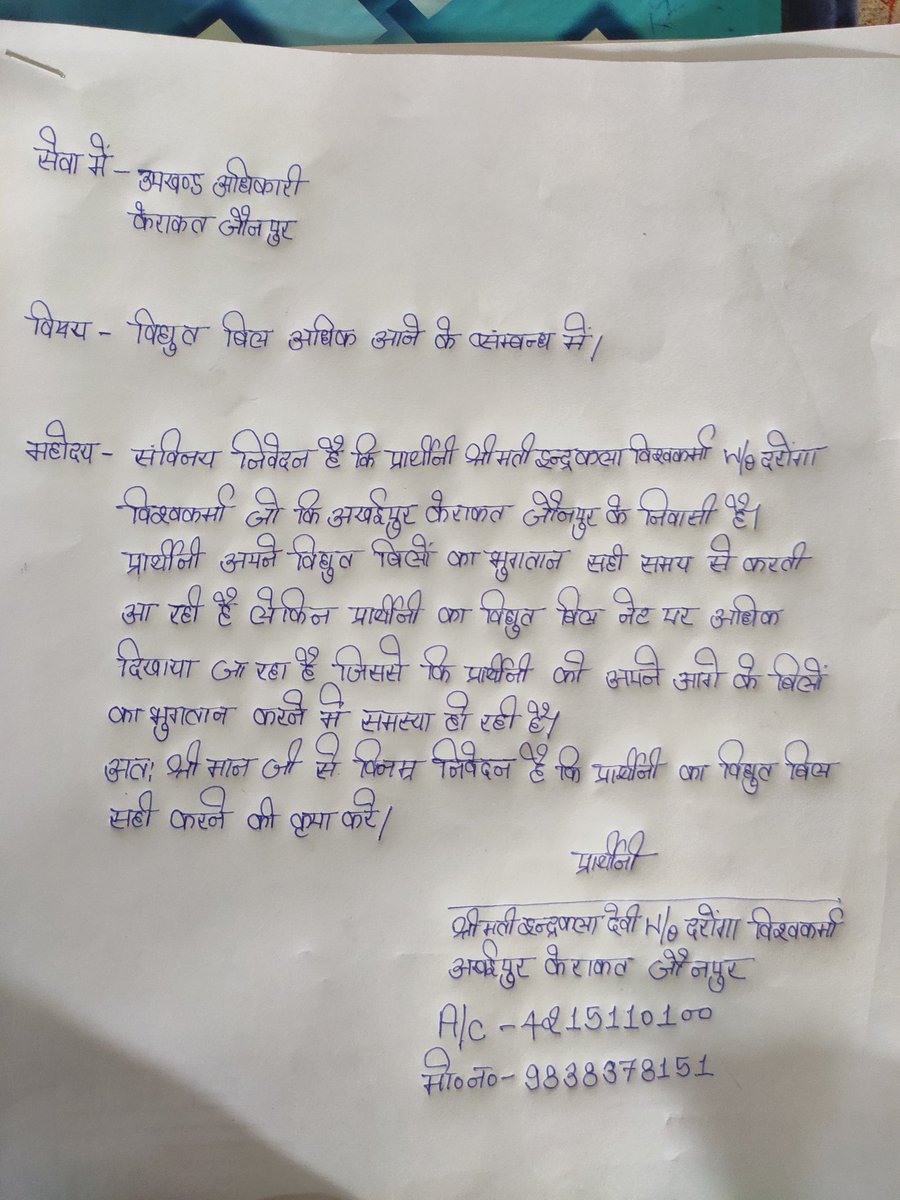 सेवा में - उपखण्ड अधिकारी
केराकत जौनपुर
विषय - विद्युत बिल अधिक आने के सम्बन्ध में।
महोदय - संविनय निवेदन है कि प्रार्थीनी श्रीमती इन्द्रकला विश्वकर्मा W/o दरोगा
विश्वकर्मा जो कि अखईपुर केराकत जौनपुर के निवासी है।
प्रार्थीनी अपने विद्युत बिलों का भुगतान सही समय से करती
आ रही है लेकिन प्रार्थीनी का विद्युत बिल नेट पर अधिक
दिखाया जा रहा है जिससे कि प्रार्थीनी को अपने आगे के बिलों
का भुगतान करने में समस्या हो रही है।
अतः श्री मान जी से विनम्र निवेदन है कि प्रार्थीनी का विद्युत बिल
सही करने की कृपा करे।
प्रार्थीनी
श्रीमती इन्द्रकला देवी W/o दरोगा विश्वकर्मा
अखईपुर केराकत जौनपुर
A/c - 4215110100
मो०न०- 9838378151